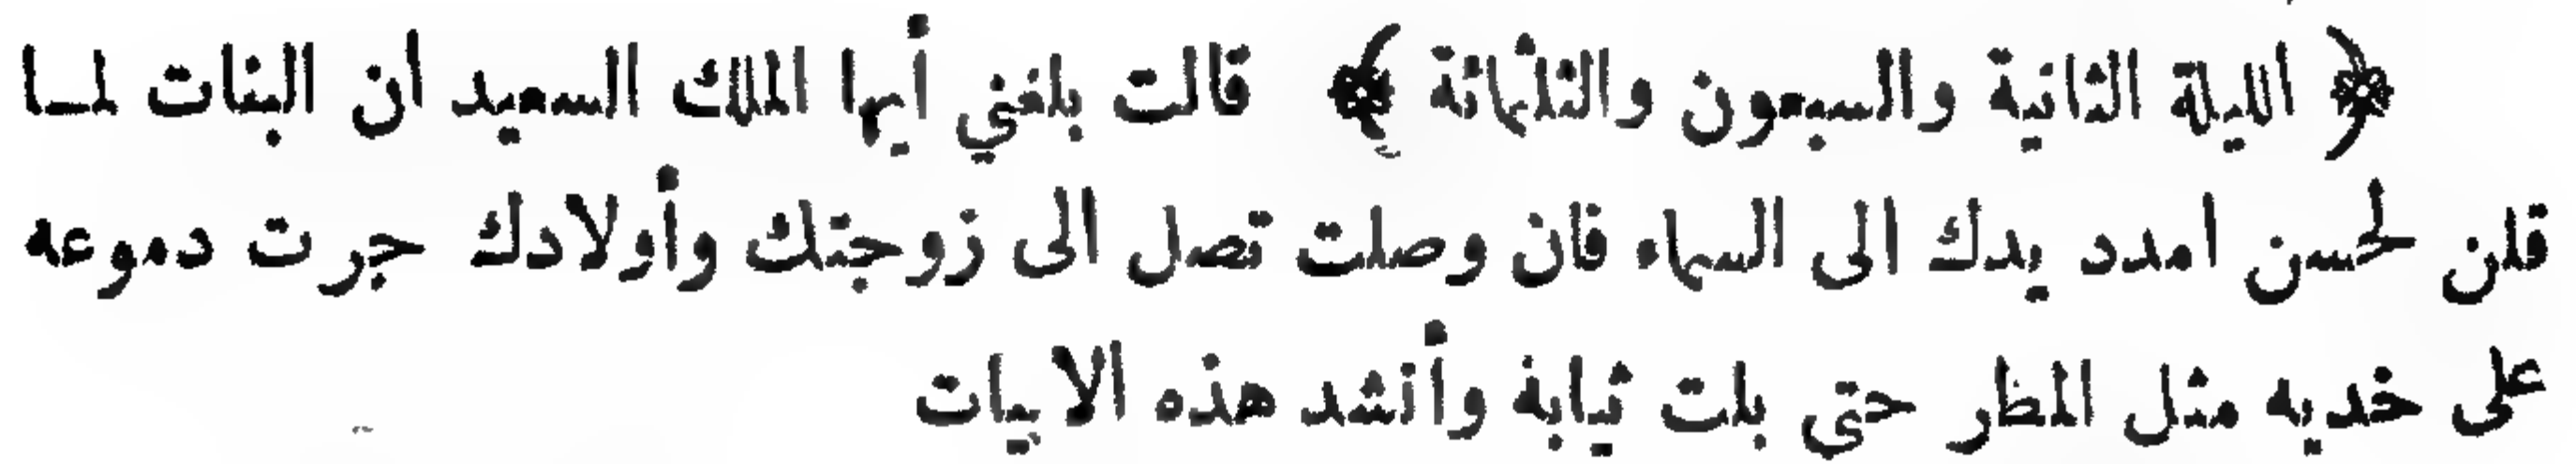 ﴿ الليلة الثانية والسبعون والثلثمائة ﴾ قالت بلغني أيها الملك السعيد ان البنات لمـا
قلن لحسن امدد يدك الى السماء فان وصلت تصل الى زوجتك وأولادك جرت دموعه
على خديه مثل المظر حتى بلت ثيابة وأنشد هذه الابيات